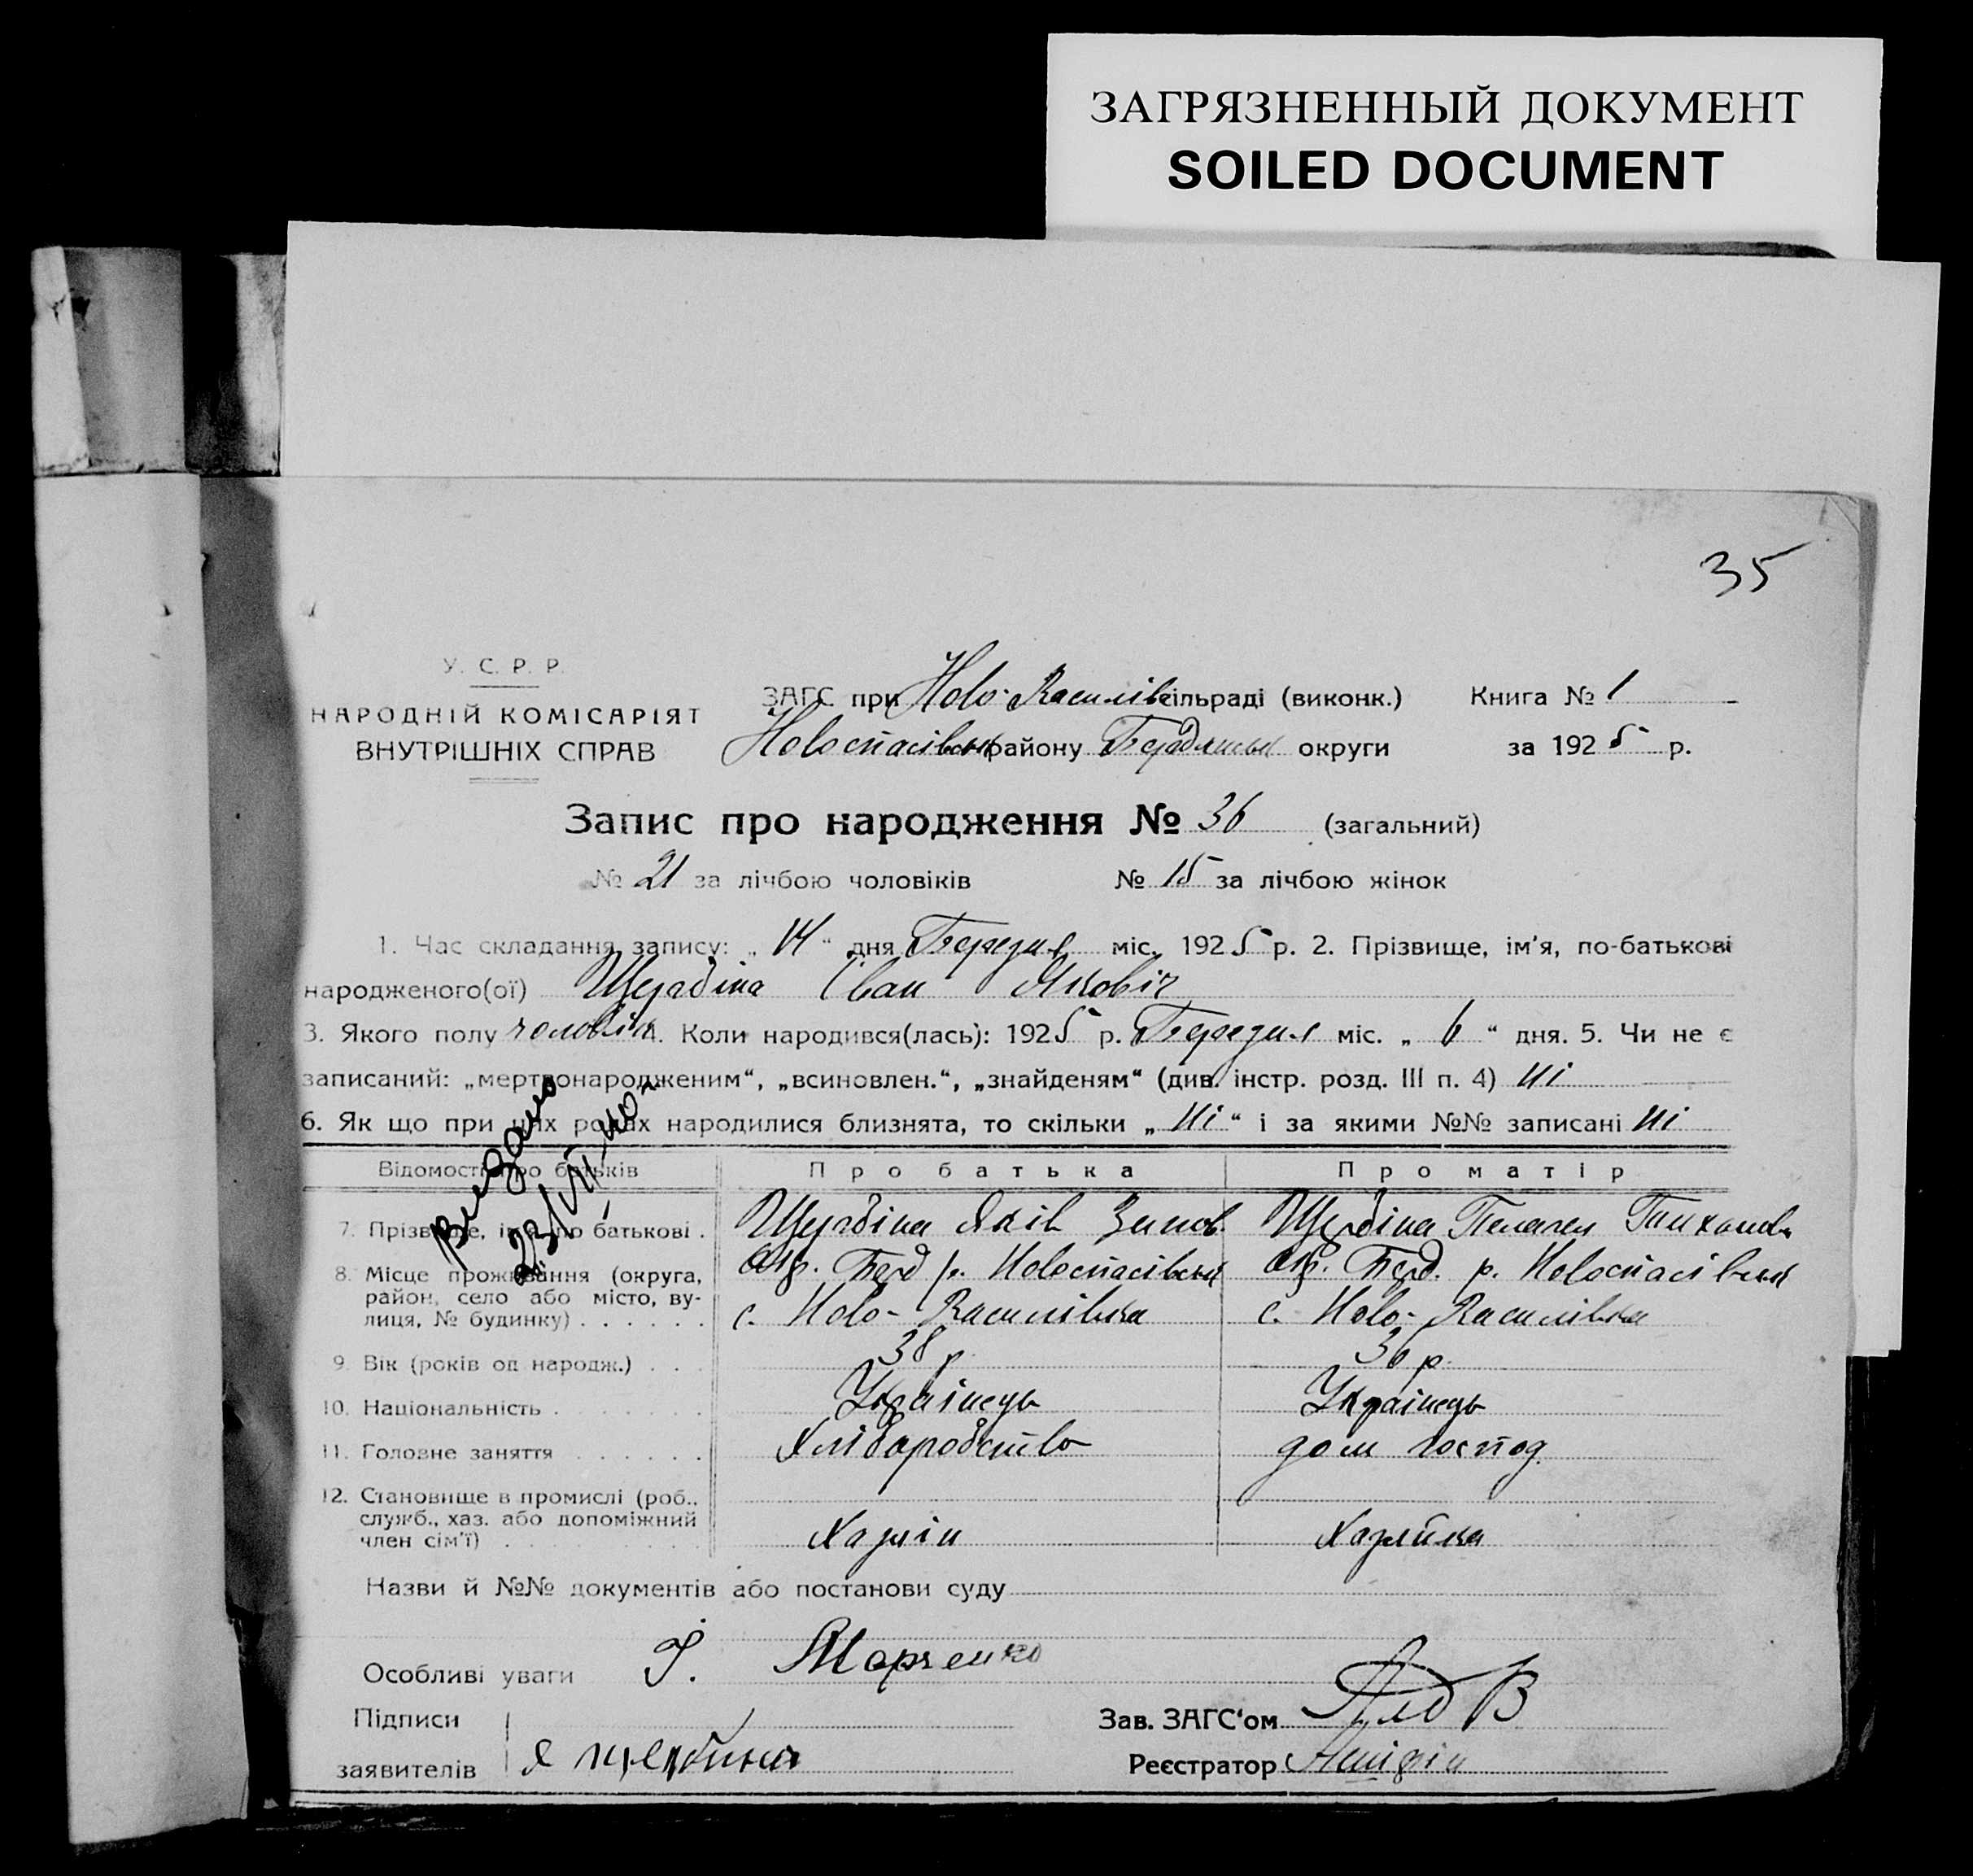 ЗАГРЯЗНЕННЫЙ ДОКУМЕНТ
SOILED DOCUMENT
35
У. С. Р. Р.
НАРОДНІЙ КОМІСАРІЯТ
ВНУТРІШНІХ СПРАВ
ЗАГС при Ново-Василівс сільраді (виконк.) Книга № 1
Новоспасівськ району Бердянськ округи за 1925 р.
Запис про народження № 36 (загальний)
№ 21 за лічбою чоловіків № 15 за лічбою жінок
1. Час складання запису: „14“ дня Березня міс. 1925 р. 2. Прізвище, ім'я, по-батькові
народженого(ої) Щербіна Іван Яковіч
3. Якого полу чоловік 4. Коли народився(лась): 1925 р. Березня міс. „6“ дня. 5. Чи не є
записаний: „мертвонародженим“, „всиновлен.“, „знайденям“ (див. інстр. розд. III п. 4) ні
6. Як що при цих родах народилися близнята, то скільки „ні“ і за якими №№ записані ні
Видано
23/VII-40
Відомості про батьків Про батька Про матір
7. Прізвище, ім'я, по батькові . Щербіна Яків Зинов. Щербіна Пелагея
8. Місце проживання (округа, район, село або місто, ву-
лиця, № будинку) . . . . . .
Окр. Берд р. Новоспасівськ Окр. Берд. р. Новоспасівськ
с. Ново-Василівка с. Ново-Василівка
9. Вік (років од народж.) . . 38 р. 36 р.
10. Національність . . . . . Українець Українець
11. Головне заняття . . . . . . Хліборобство дом господ.
12. Становище в промислі (роб.,
служб., хаз. або допоміжний
член сім'ї) . . . . . . . . . Хазяін Хазяйка
Назви й №№ документів або постанови суду
Особливі уваги І. Марченко
Підписи
заявителів Я Щербина
Зав. ЗАГС'ом
Реєстратор